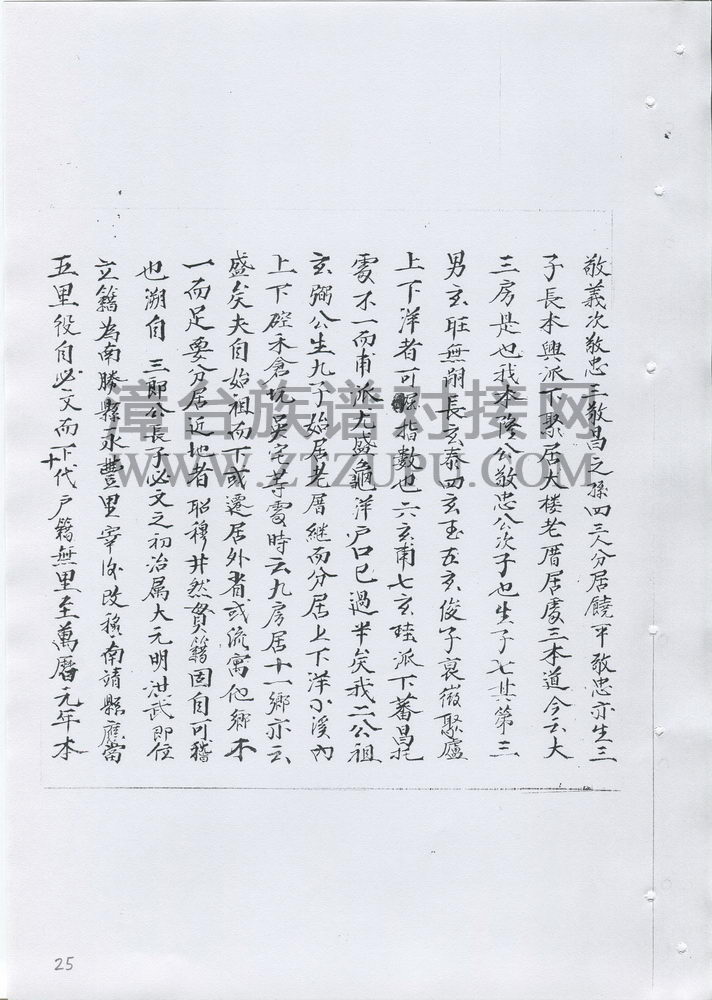 敬義次敬忠三敬昌之孫四三人分居饒平敬忠亦生三
子長本興派下聚居大楼老厝居處三本道今云大
三房是也我本隆公敬忠公次子也生子七其第三
男玄旺無嗣長玄泰四玄玉五玄俊子衰微聚廬
上下洋者可屈指數也六玄甫七玄珪派下蕃昌托
處不一而甫派尤盛龜洋户口已過半矣我二公祖
玄弼公生九子始居老厝继而分居上下洋小溪內
上下硿禾倉坑吴宅等處時云九房居十一鄉亦云
盛矣夫自始祖而下或遷居外省或流寓他鄉不
一而足要分居近地者昭穆井然貫籍固自可稽
也溯自 三郎公長子必文之初治属大元明洪武即位
立籍為南勝縣永豊里宰後改移南靖縣應當
五里役自必文而下十代户籍無里至萬曆元年本
漳台族谱对接网
WWW.ZTZUPU.COM
25